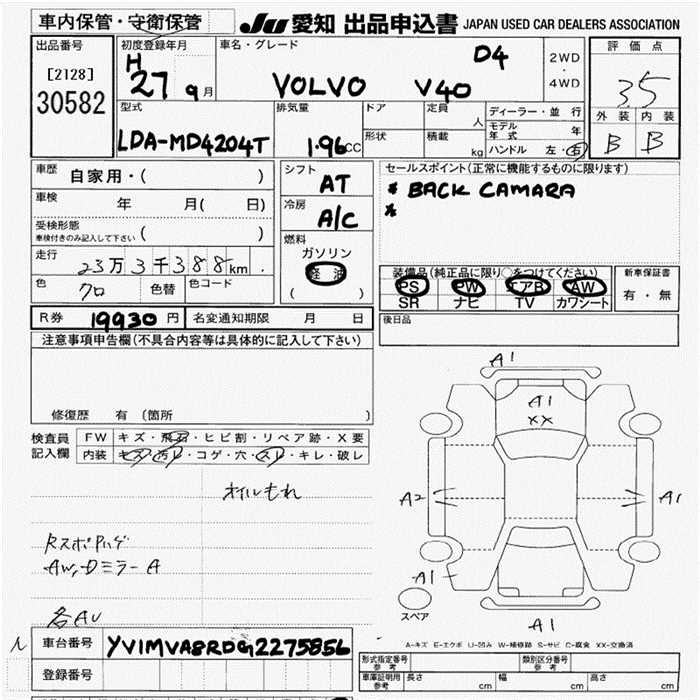 車内保管・守衛保管 JU 愛知 出品申込書 JAPAN USED CAR DEALERS ASSOCIATION
出品番号 初度登録年月 車名・グレード D4 2WD・4WD 評価点
[2128] H 27 9月 VOLVO V40 3.5
30582
型式 排気量 ドア 定員 人 ディーラー・並行 外装 内装
モデル年式 年
LDA-MD4204T 1.96CC 形状 積載 kg ハンドル 左・右 B B
車歴 自家用・( ) シフト AT セールスポイント(正常に機能するものに限ります)
* BACK CAMARA
*
車検 年 月( 日) 冷房 A/C
受検形態
車検付きのみ記入して下さい ( )
燃料 ガソリン
軽油
( )
走行 23万3千388km
色 クロ 色替 色コード
装備品(純正品に限り○をつけてください) 新車保証書
PS PW エアB AW 有・無
SR ナビ TV カワシート
R券 19930円 名変通知期限 月 日 後日品
注意事項申告欄(不具合内容等は具体的に記入して下さい)
修復歴 有 (箇所 )
検査員記入欄 FW キズ・飛石・ヒビ割・リペア跡・X要
内装 キズ・汚レ・コゲ・穴・スレ・キレ・破レ
オイルもれ
AW,Dミラー A
各AU
A1
A1
XX
A2 A1
A1
スペア A1
A-キズ E-エクボ U-凹み W-補修跡 S-サビ C-腐食 XX-交換済
車台番号 YV1MVA8RDG2275856
登録番号
形式指定番号 参考 類別区分番号 参考
車庫証明用 参考 長さ cm 幅 cm 高さ cm